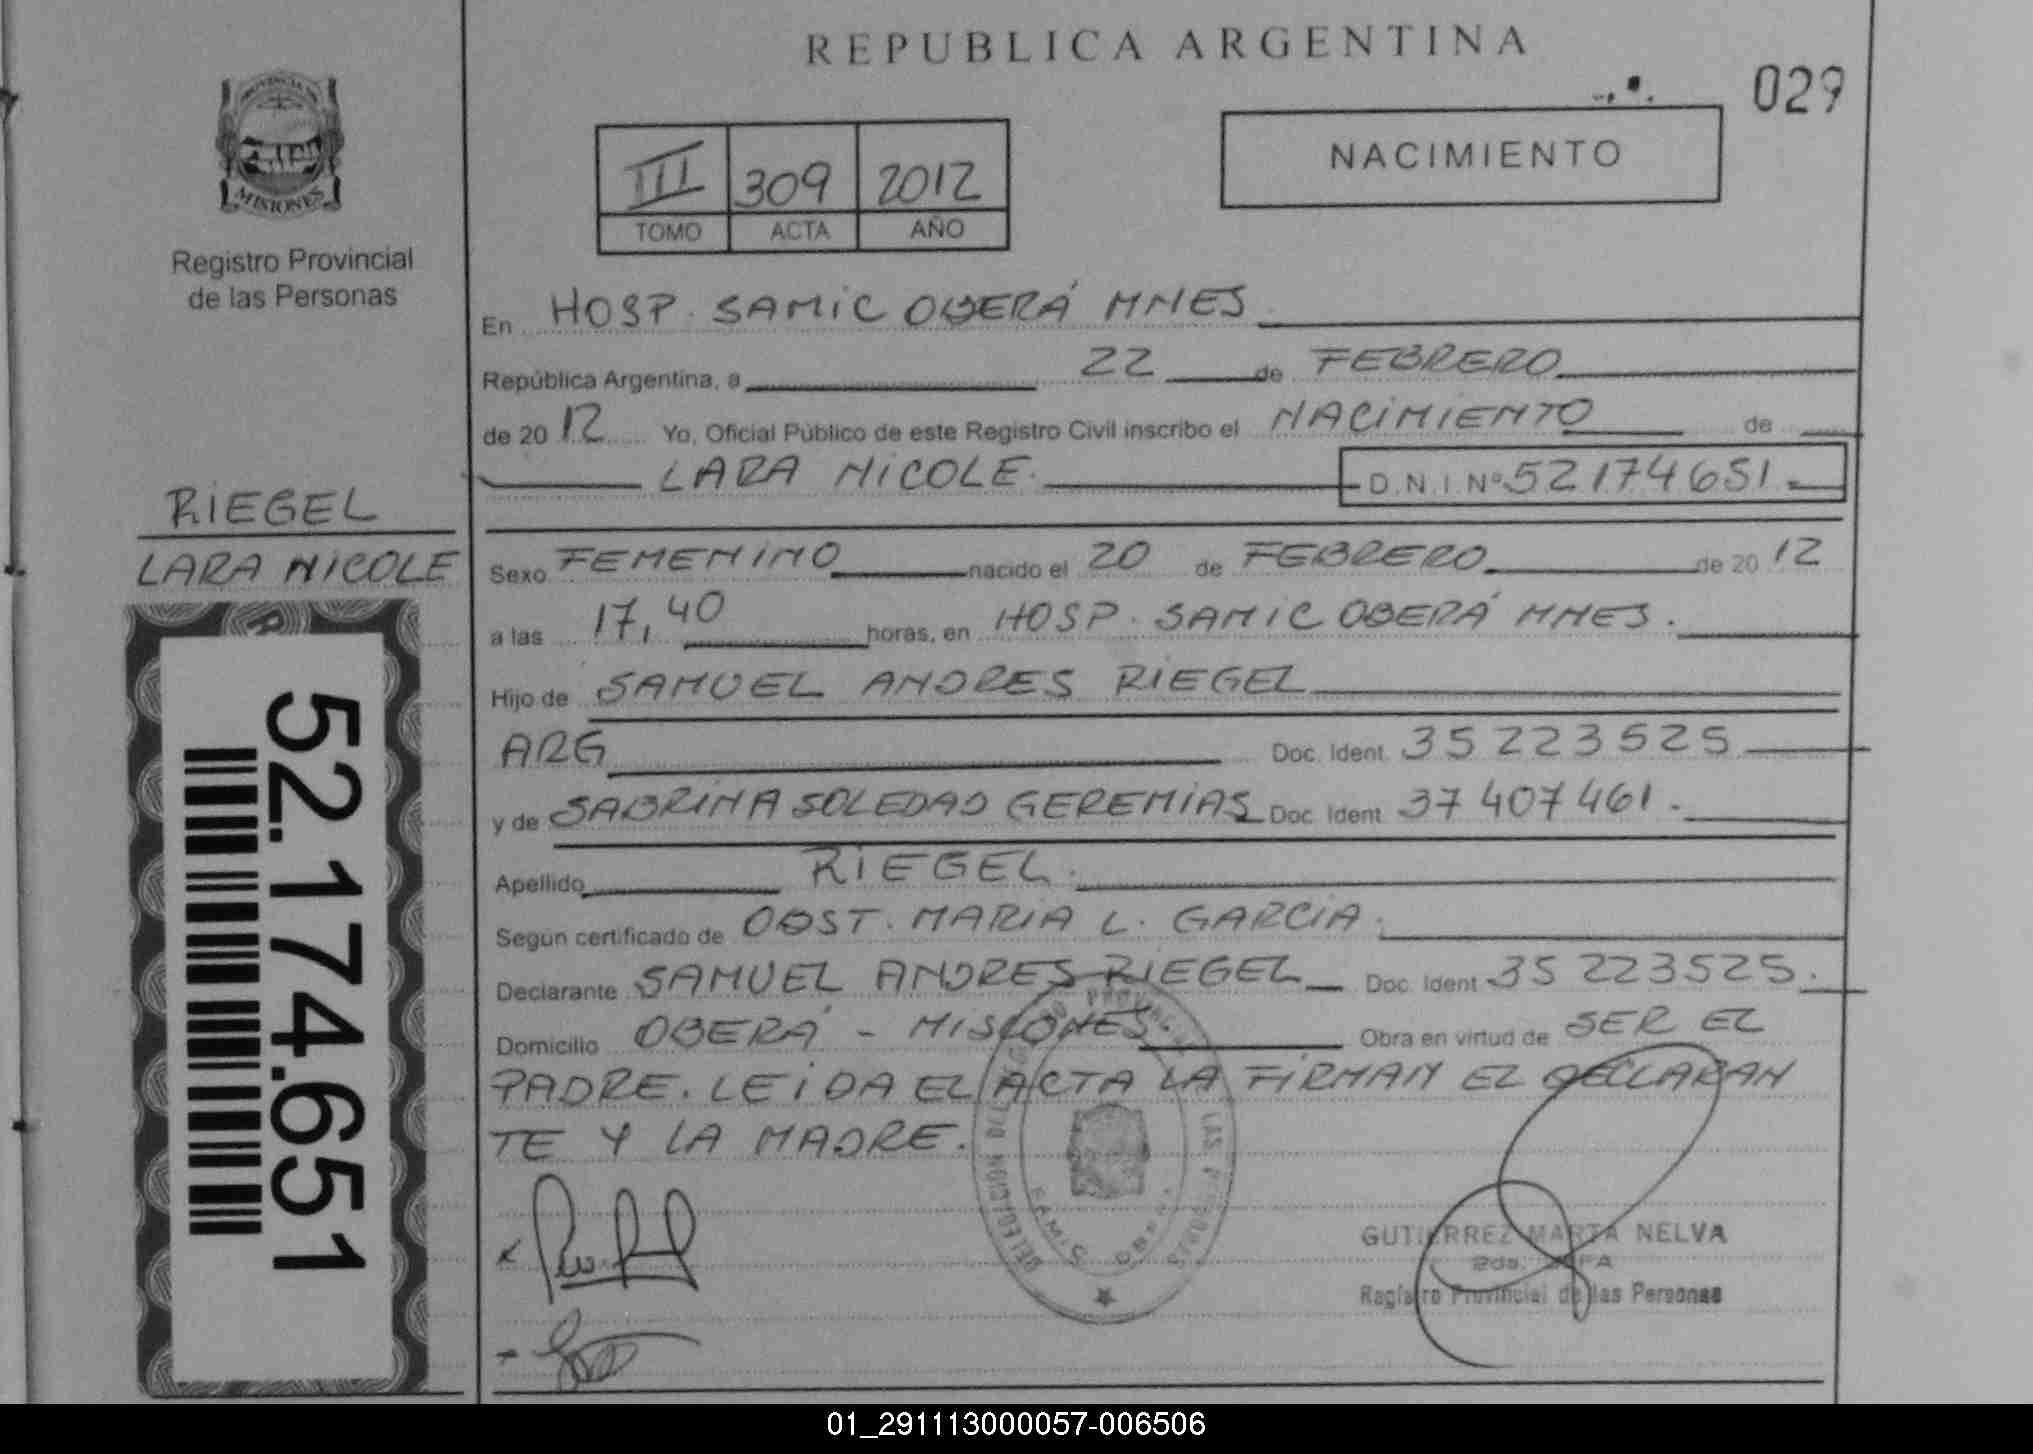 REPUBLICA ARGENTINA
029
NACIMIENTO
III 309 2012
TOMO ACTA AÑO
MISIONES
Registro Provincial
de las Personas
RIEGEL
LARA NICOLE
52.174.651
En HOSP. SAMIC OBERÁ MNES
República Argentina, a 22 de FEBRERO
de 2012 Yo, Oficial Público de este Registro Civil inscribo el NACIMIENTO de
LARA NICOLE. D.N.I. Nº 52174651.
Sexo FEMENINO nacido el 20 de FEBRERO de 2012
a las 17,40 horas, en HOSP. SAMIC OBERÁ MNES.
Hijo de SAMUEL ANDRES RIEGEL
ARG Doc. Ident. 35223525
y de SABRINA SOLEDAD GEREMIAS Doc. Ident. 37407461.
Apellido RIEGEL.
Según certificado de OBST. MARIA L. GARCIA.
Declarante SAMUEL ANDRES RIEGEL Doc. Ident 35223525.
Domicilio OBERÁ - MISIONES Obra en virtud de SER EL
PADRE. LEIDA EL ACTA LA FIRMAN EL DECLARAN
TE Y LA MADRE.
GUTIERREZ MARTA NELVA
2da. JEFA
Registro Provincial de las Personas
01_291113000057-006506